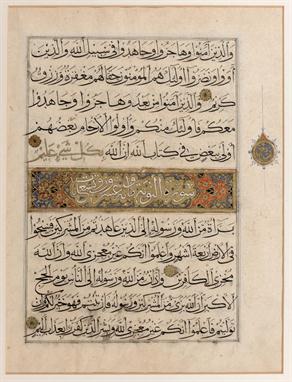 والذين آمنوا وهاجروا وجاهدوا في سبيل الله والذين
آووا ونصروا أولئك هم المؤمنون حقا لهم مغفرة ورزق
كريم والذين آمنوا من بعد وهاجروا وجاهدوا
معكم فأولئك منكم وأولوا الأرحام بعضهم
أولى ببعض في كتاب الله إن الله بكل شيء عليم
سورة التوبة مائة وعشرون وتسع
براءة من الله ورسوله إلى الذين عاهدتم من المشركين فسيحوا
في الأرض أربعة أشهر واعلموا أنكم غير معجزي الله وأن الله
مخزي الكافرين وأذان من الله ورسوله إلى الناس يوم الحج
الأكبر أن الله بريء من المشركين ورسوله فإن تبتم فهو خير لكم وإن
توليتم فاعلموا أنكم غير معجزي الله وبشر الذين كفروا بعذاب أليم